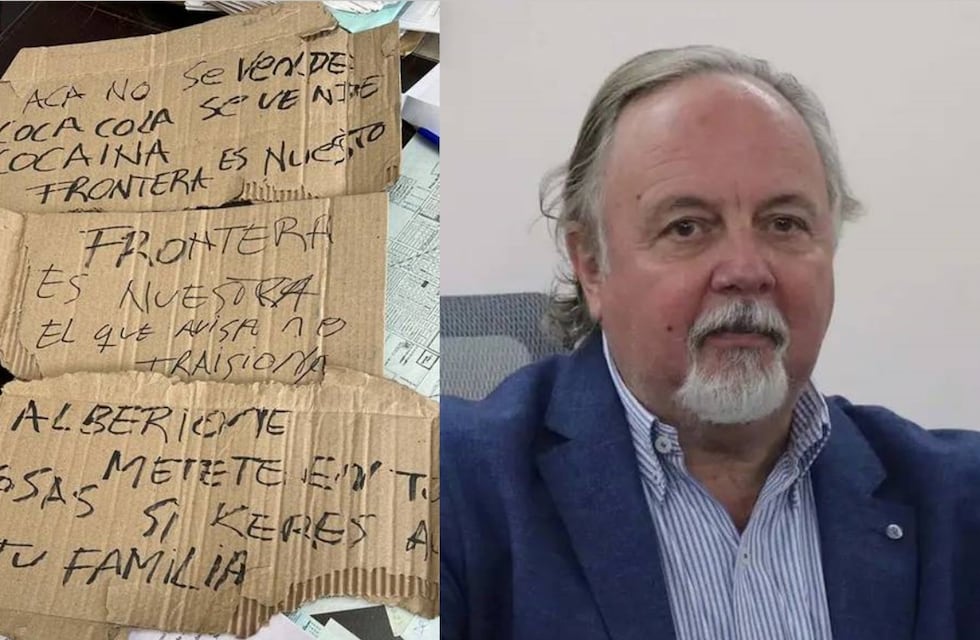 ACA NO SE VENDE
COCA COLA SE VENDE
COCAINA
FRONTERA ES NUESTO
FRONTERA
ES NUESTRA
EL QUE AVISA NO
TRAISIONA
ALBERIONE
OSAS METETE EN TU
SI KERES A
TU FAMILIA